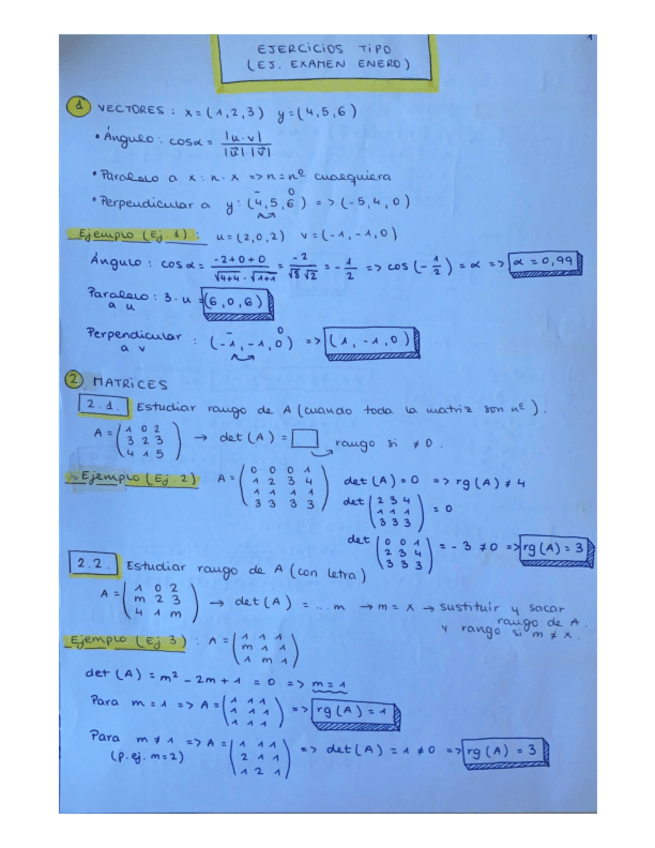 1
EJERCICIOS TIPO
(EJ. EXAMEN ENERO)
1 VECTORES: x=(1,2,3) y=(4,5,6)
• Ángulo: cosα = |u·v| / |u⃗|·|v⃗|
• Paralelo a x: n·x => n=nº cualquiera
• Perpendicular a y: (4,5,6) => (-5,4,0)
- 0
Ejemplo (Ej 1): u=(2,0,2) v=(-1,-1,0)
Ángulo: cosα = -2+0+0 / √4+4 · √1+1 = -2 / √8 √2 = -1/2 => cos(-1/2) = α => α = 0,99
Paralelo: 3·u = (6,0,6)
a u
Perpendicular : (-1,-1,0) => (1,-1,0)
a v
- 0
2 MATRICES
2.1. Estudiar rango de A (cuando toda la matriz son nº).
A = (1 0 2
3 2 3
4 1 5) → det(A) = □ rango si ≠0.
Ejemplo (Ej. 2) A = (0 0 0 1
1 2 3 4
1 1 1 1
3 3 3 3)
det(A)=0 => rg(A)≠4
det (2 3 4
1 1 1
3 3 3) = 0
det (0 0 1
2 3 4
3 3 3) = -3 ≠0 => rg(A)=3
2.2. Estudiar rango de A (con letra)
A = (1 0 2
m 2 3
4 1 m) → det(A) = ... m → m = x → sustituir y sacar
rango de A.
y rango si m ≠ x.
Ejemplo (Ej 3): A = (1 1 1
m 1 1
1 m 1)
det(A) = m² - 2m + 1 = 0 => m=1
Para m=1 => A = (1 1 1
1 1 1
1 1 1) => rg(A)=1
Para m≠1 => A = (1 1 1
2 1 1
1 2 1) => det(A) = 1 ≠0 => rg(A) = 3
(p.ej. m=2)